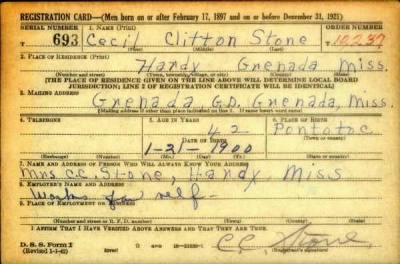 REGISTRATION CARD—(Men born on or after February 17, 1897 and on or before December 31, 1921)
SERIAL NUMBER 1. NAME (Print) ORDER NUMBER
693 Cecil Clifton Stone 10237
(First) (Middle) (Last)
2. PLACE OF RESIDENCE (Print)
Hardy Grenada Miss.
(Number and street) (Town, township, village, or city) (County) (State)
[THE PLACE OF RESIDENCE GIVEN ON THE LINE ABOVE WILL DETERMINE LOCAL BOARD
JURISDICTION; LINE 2 OF REGISTRATION CERTIFICATE WILL BE IDENTICAL]
3. MAILING ADDRESS
Grenada G.D. Grenada, Miss.
[Mailing address if other than place indicated on line 2. If same insert word same]
4. TELEPHONE 5. AGE IN YEARS 6. PLACE OF BIRTH
42 Pontotoc
DATE OF BIRTH (Town or county)
1-21-1900
(Exchange) (Number) (Mo.) (Day) (Yr.) (State or country)
7. NAME AND ADDRESS OF PERSON WHO WILL ALWAYS KNOW YOUR ADDRESS
Mrs C.C. Stone, Hardy, Miss
8. EMPLOYER'S NAME AND ADDRESS
Works for self
9. PLACE OF EMPLOYMENT OR BUSINESS
(Number and street or R. F. D. number) (Town) (County) (State)
I AFFIRM THAT I HAVE VERIFIED ABOVE ANSWERS AND THAT THEY ARE TRUE.
D. S. S. Form 1
(Revised 1-1-42)
C.C. Stone